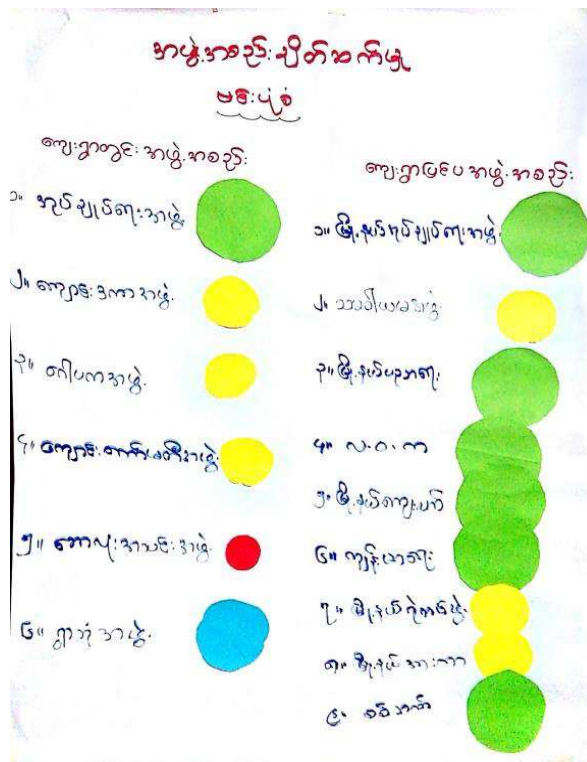 အဖွဲ့အစည်းချိတ်ဆက်မှု
မင်းပုံစံ
ကျေးရွာတွင်းအဖွဲ့အစည်း
၁။ အုပ်ချုပ်ရေးအဖွဲ့
၂။ ကျောင်းဒကာအဖွဲ့
၃။ ဂေါပကအဖွဲ့
၄။ ကျောင်းကော်မတီအဖွဲ့
၅။ ဘောလုံးအသင်းအဖွဲ့
၆။ ရွာဘုံအဖွဲ့
ကျေးရွာပြင်ပအဖွဲ့အစည်း
၁။ မြို့နယ်အုပ်ချုပ်ရေးအဖွဲ့
၂။ သမဝါယမအဖွဲ့
၃။ မြို့နယ်ပညာရေး
၄။ လ.ဝ.က
၅။ မြို့နယ်ကျေးလက်
၆။ ကျန်းမာရေး
၇။ မြို့နယ်
၈။ မြို့နယ်အားကာ
၉။